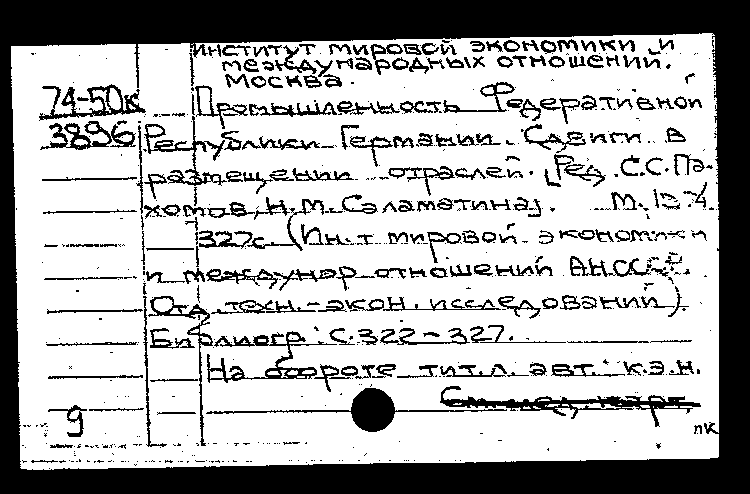 Институт мировой экономики и
международных отношений.
Москва.
74-50к Промышленность Федеративной
3896 Республики Германии. Сдвиги в
размещении отраслей. [Ред. С.С.Па-
хомов, Н.М.Саламатина]. М.
327с. (Ин-т мировой экономики
и междунар отношений АН СССР.
Отд. техн.-экон. исследований).
Библиогр: С.322-327.
На обороте тит.л. авт.: к.э.н.
См. след. карт.
9
пк